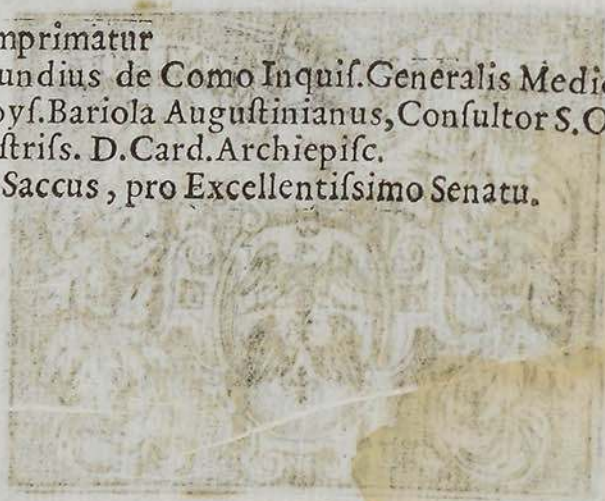 mprimatur
undius de Como Inquiſ.Generalis Medi
oyſ.Bariola Auguſtinianus,Conſultor S.O
ſtriſs. D.Card.Archiepiſc.
Saccus , pro Excellentiſsimo Senatu.